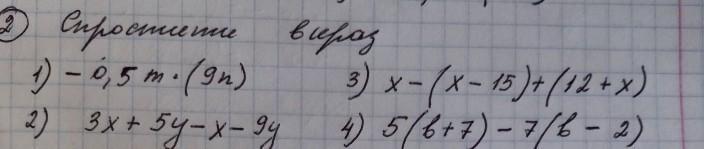 2 Спростити вираз
1) -0,5m·(9n)
2) 3x+5y-x-9y
3) x-(x-15)+(12+x)
4) 5(b+7)-7(b-2)